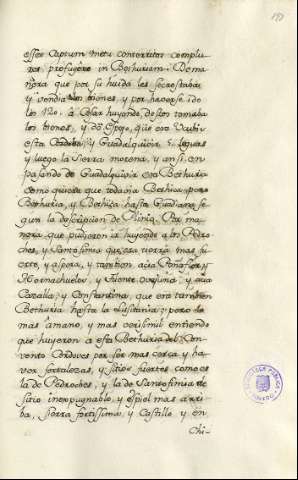 esse Captum metu conterritos complu-
res profugere in Bethuriam: De ma-
nera que por su huida les secrestabar
y vendia los bienes, y por haverse ido
los 120. à Cesar huyendo, de los tomaba
los bienes, y de Espejo, que era Ucubi
esta Cordoba y Guadalquivir 5. leguas
y luego la sierra morena, y ansi, en
pasando de Guadalquivir era Bethuria
como quiera que toda via Bethica, pero
Bethuria, y Bethica hasta Guadiana, se-
gun la descripcion de Plinio. Por ma-
nera que pudieron ir huyendo a los Pedro-
ches, y Santofimia que era tierra mas fu-
erte, y aspera, y tambien acia Peñaflor y
Hornachuelos, y Fuente ovejuna, y acia
Cazalla, y Constantina, que era tambien
Bethuria hasta la Lusitania; pero de
mas â mano, y mas verisimil entiendo
que huyeron a esta Bethuria del Con-
vento Corduves por ser mas cerca, y ha-
ver fortalezas, y sitios fuertes como es
la de Pedroches, y la de Santofimia de
sitio inexpugnable, y espiel mas arri-
ba, sierra fortissima, y Castillo y en
Chi-